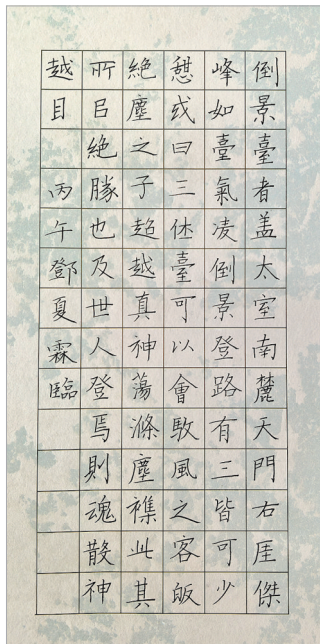 倒景臺者盖太室南麓天門右厓傑
峰如臺氣凌倒景登路有三皆可少
憇或曰三休臺可以會馭風之客皈
絶塵之子超越真神蕩滌塵襍此其
所㠯絶勝也及世人登焉則魂散神
越目 丙午鄧夏霖臨